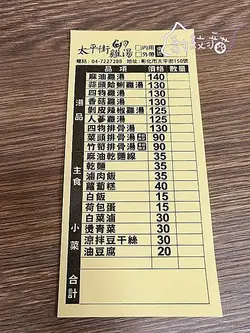 太平街 雞湯 □內用 □外帶
電話：04-7227288 地址：彰化市太平街150號
品項 價格 數量
湯品
麻油雞湯 140
蒜頭蛤蜊雞湯 130
四物雞湯 130
香菇雞湯 130
剝皮辣椒雞湯 125
人參雞湯 125
四物排骨湯 90
菜頭排骨湯 90
竹筍排骨湯 90
主食
麻油乾麵線 35
乾麵 35
滷肉飯 35
蘿蔔糕 40
白飯 15
小菜
荷包蛋 15
白菜滷 30
燙青菜 30
涼拌豆干絲 30
油豆腐 20
合計